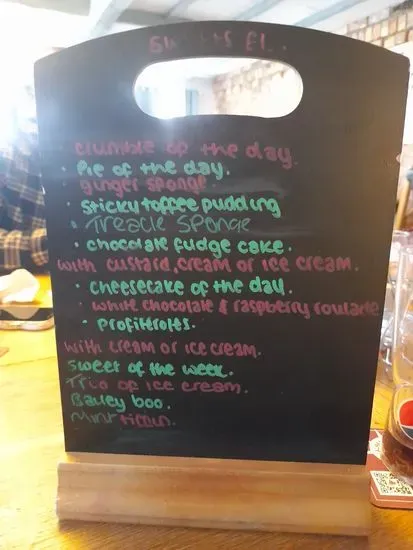 crumble of the day.
• Pie of the day.
• ginger sponge.
• sticky toffee pudding
• Treacle Sponge
• chocolate fudge cake.
with custard, cream or ice cream.
• cheesecake of the day.
• white chocolate & raspberry roulade
• Profitroles.
with cream or ice cream.
sweet of the week.
Trio of ice cream.
Bailey boo.
Mint